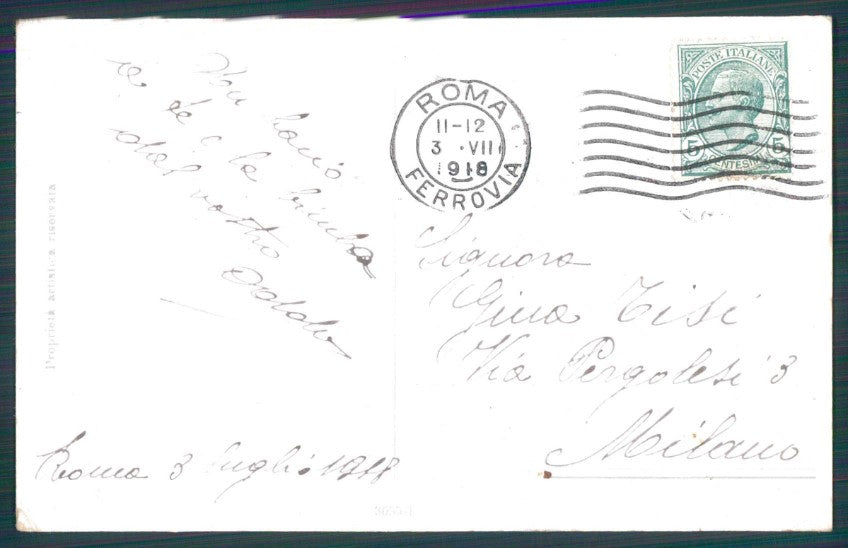 Un bacio
a te e la bimba
dal vostro
Aldo
Roma 3 luglio 1918
Proprietà artistica riservata
ROMA
11-12
3 · VII
1918
FERROVIA
POSTE ITALIANE
5 5
CENTESIMI
Signora
Gina Tisi
Via Pergolesi 3
Milano